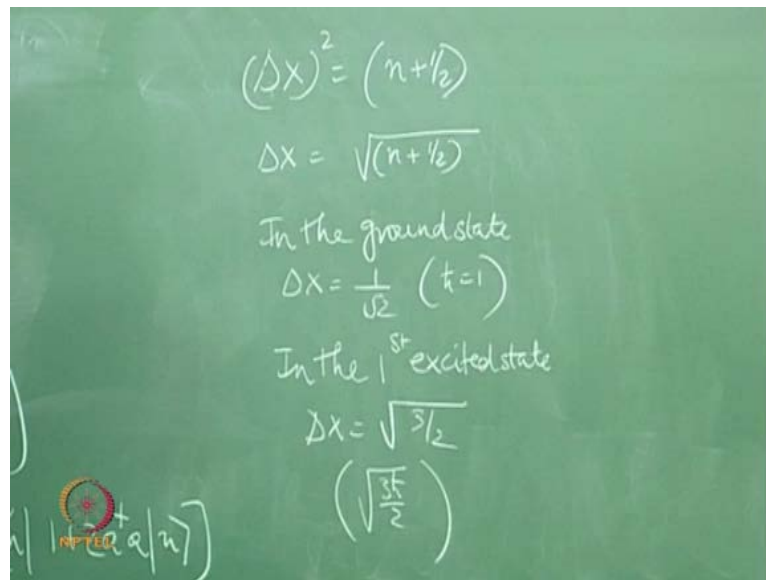 (ΔX)² = (n+1/2)
ΔX = √(n+1/2)
In the ground state
ΔX = 1/√2 (ħ=1)
In the 1st excited state
ΔX = √3/2
(√3ħ/2)
| 1+2a†a|n⟩]
NPTEL